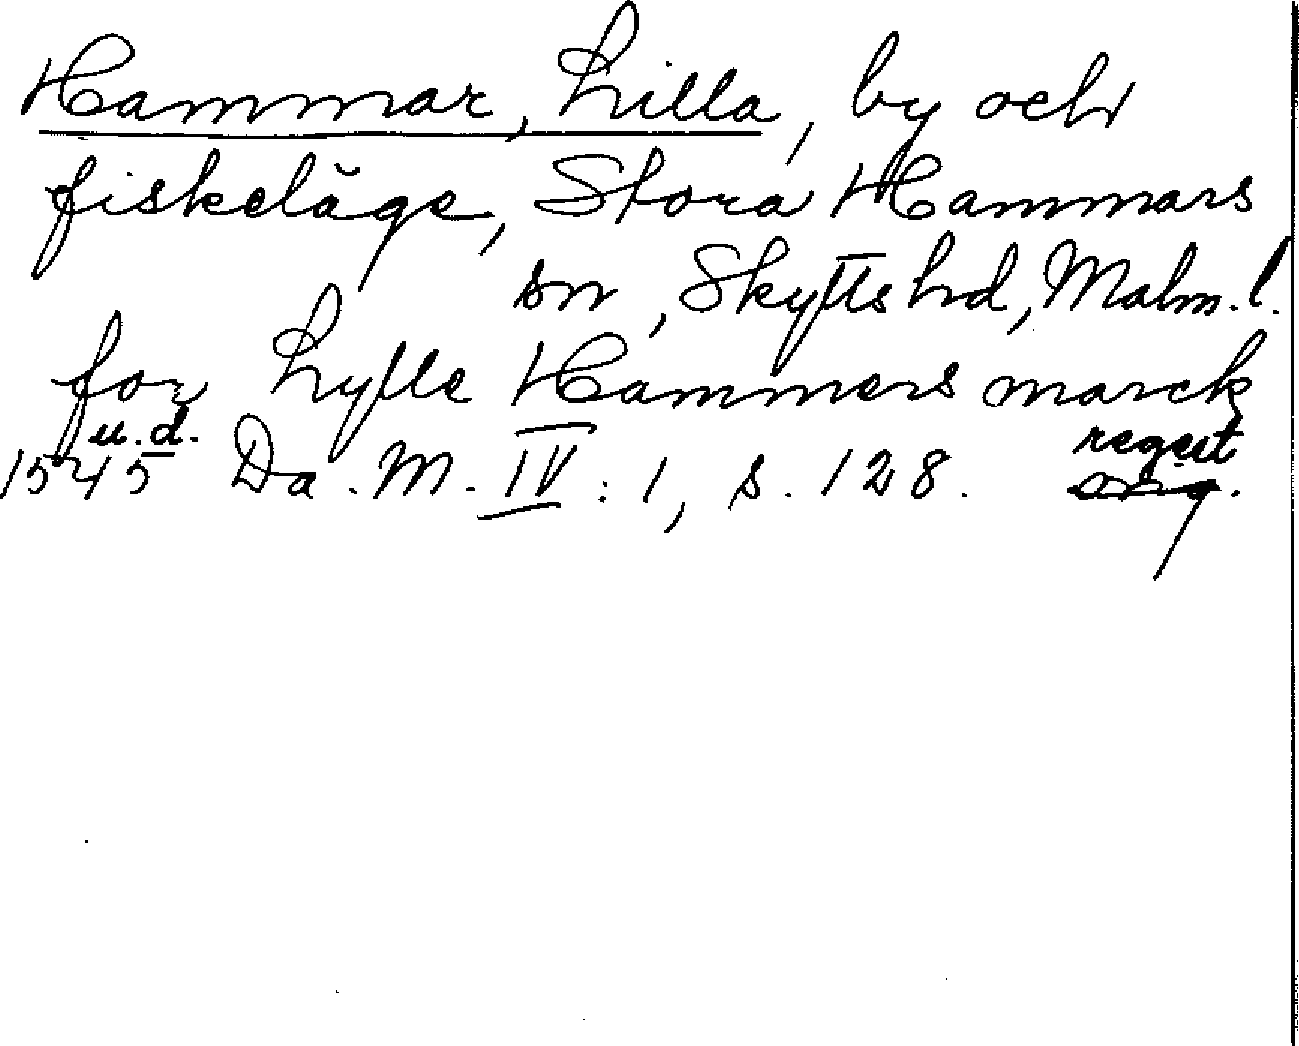 Hammar, Lilla, by och
fiskeläge, Stora Hammars
sn, Skytts hd, Malm. l.
for Lytle Hammers marck
u.d.
1545 Da. M. IV : 1, s. 128. regest